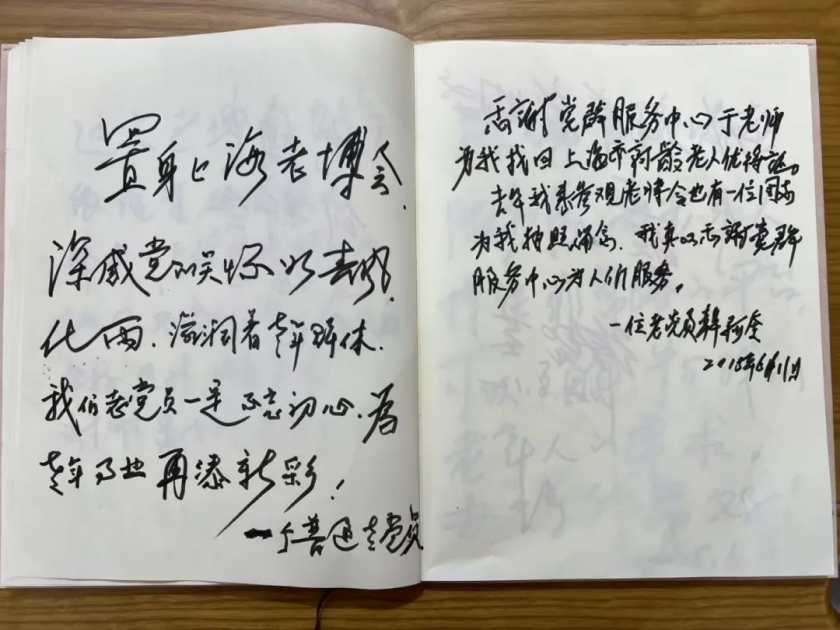 置身上海老博会,
深感党的关怀似春风
化雨,滋润着老年群体.
我们老党员一定不忘初心.为
老年事业再添新彩!
一个普通老党员
感謝党群服务中心于老师
为我找回上海市高龄老人优待证。
去年我来参观老博会也有一位同志
为我拍照留念.我真心感謝党群
服务中心为人们服务。
一位老党员
2018年6月11日